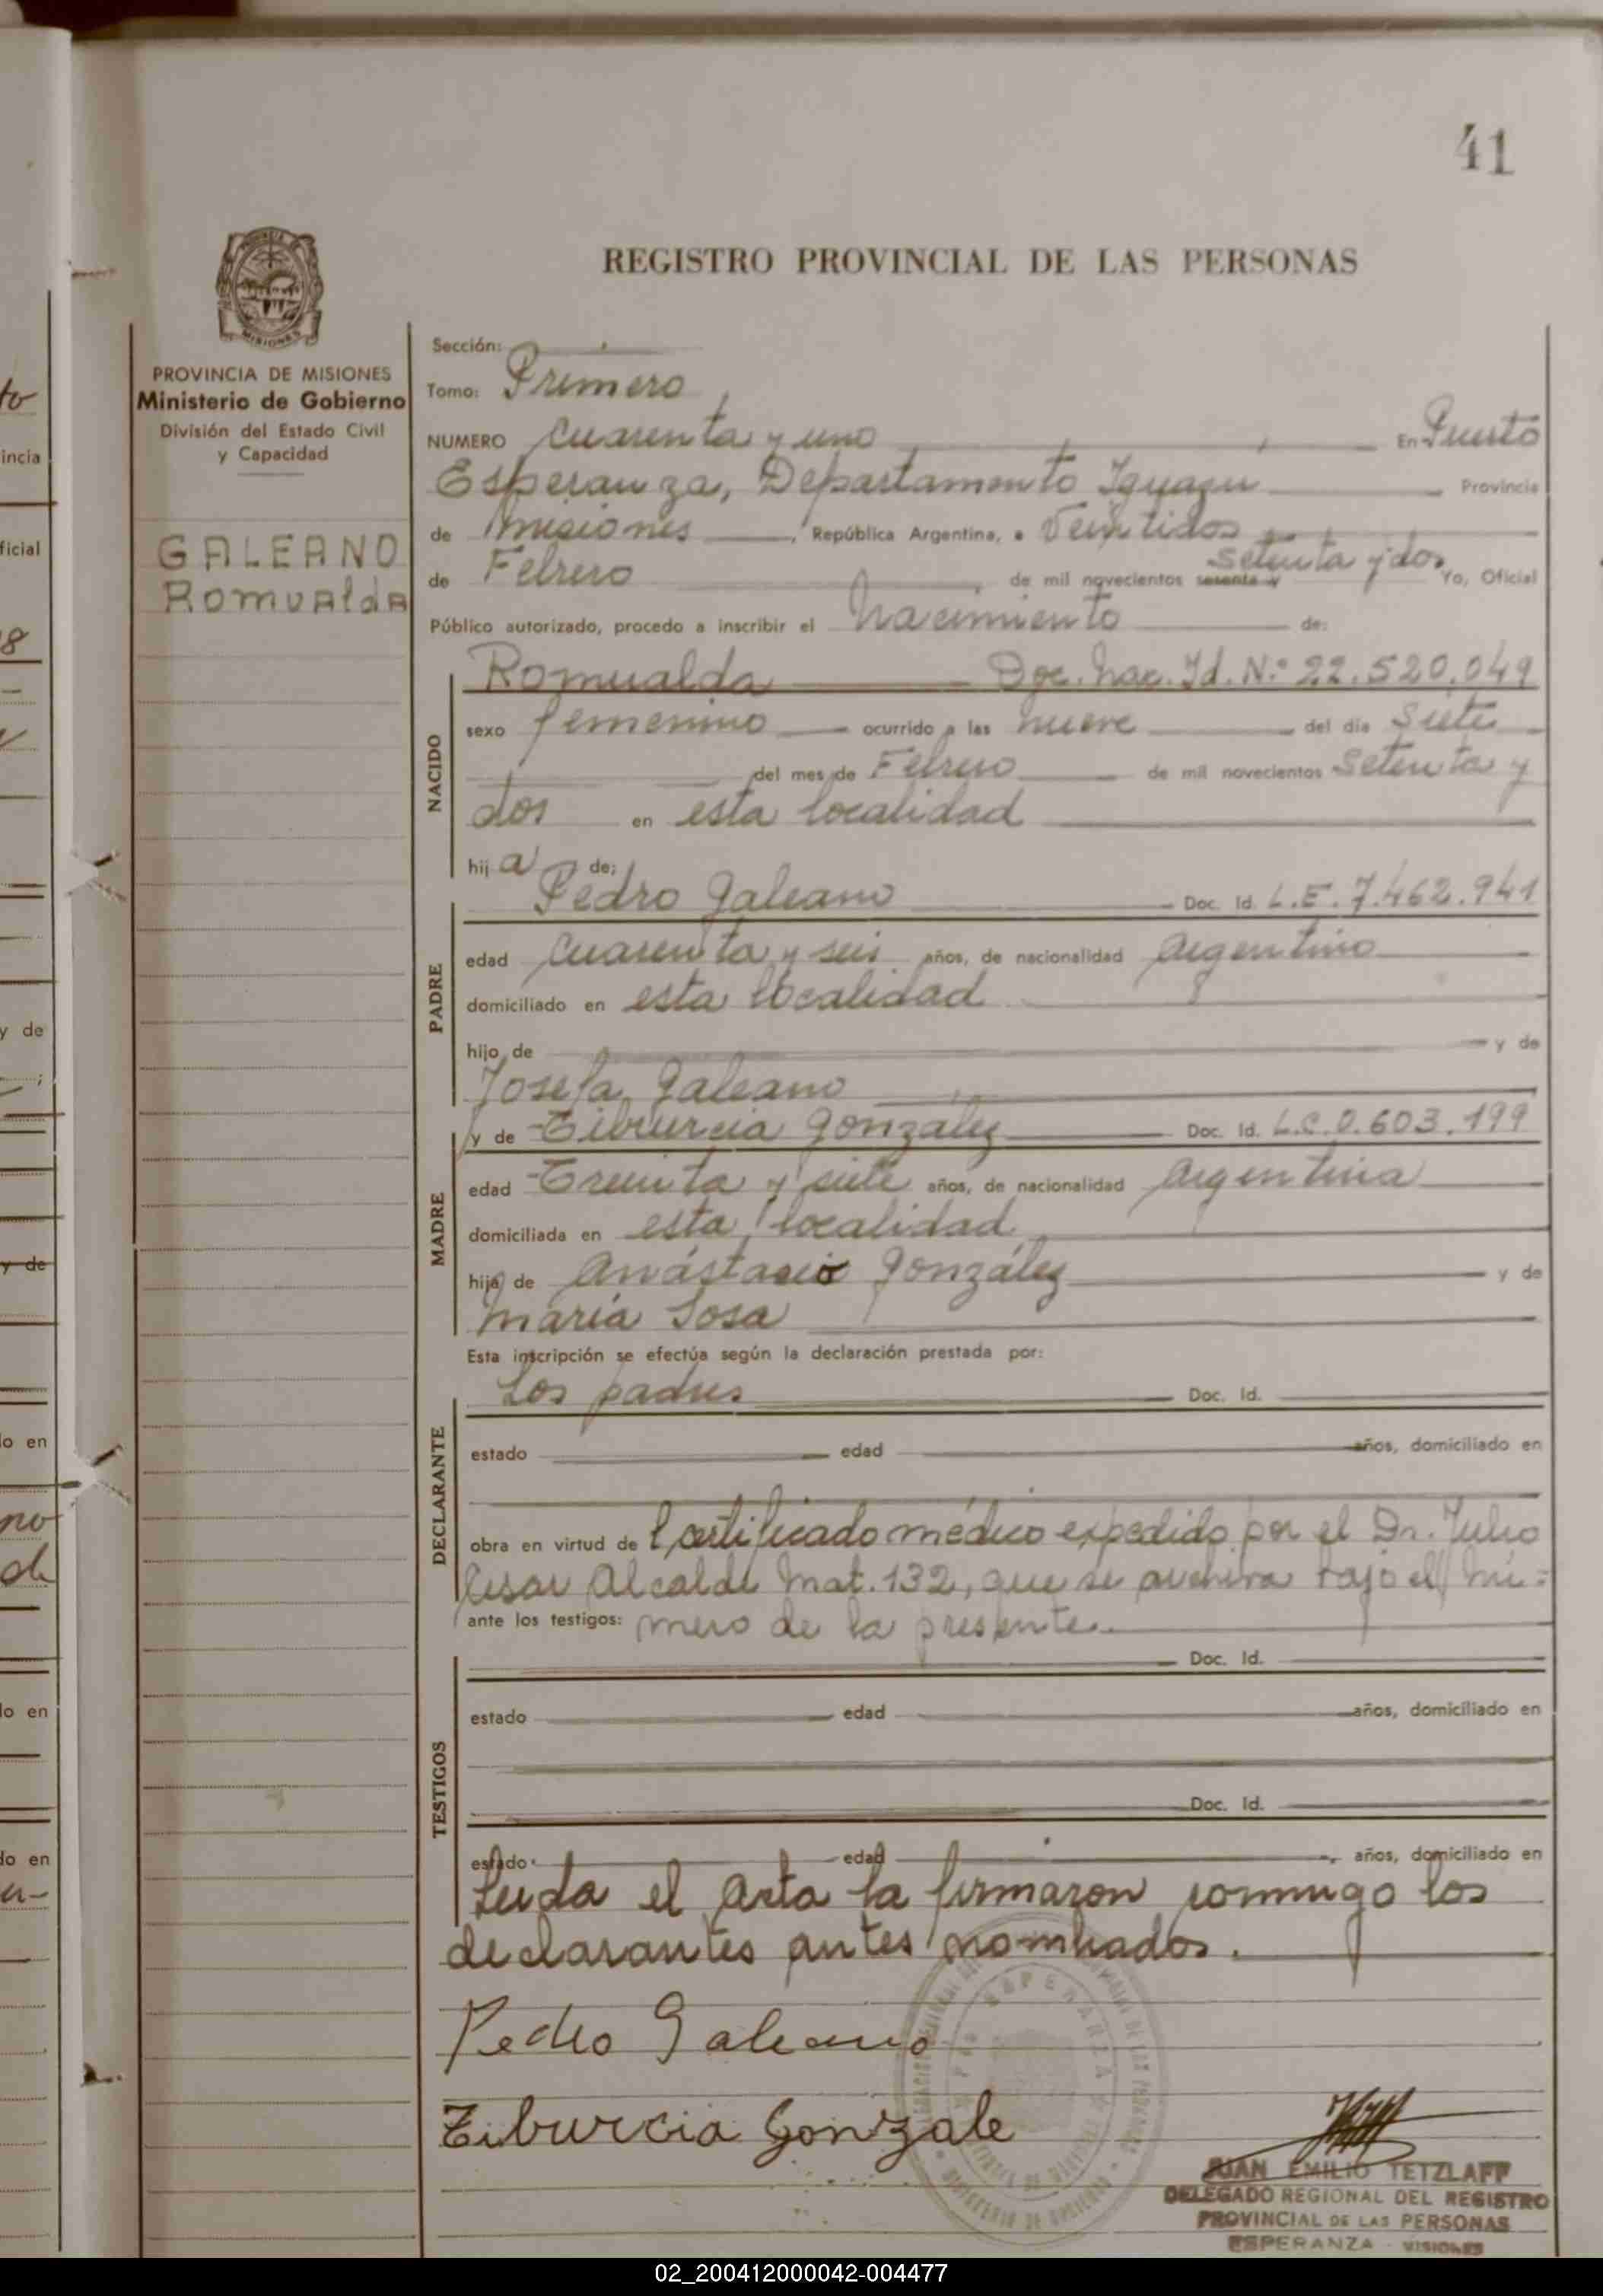 41
REGISTRO PROVINCIAL DE LAS PERSONAS
MISIONES
PROVINCIA DE MISIONES
Ministerio de Gobierno
División del Estado Civil
y Capacidad
GALEANO
Romualda
Sección:
Tomo: Primero
NUMERO Cuarenta y uno En Puerto
Esperanza, Departamento Iguazu Provincia
de Misiones, República Argentina, a Veintidos
de Febrero de mil novecientos sesenta y setenta y dos Yo, Oficial
Público autorizado, procedo a inscribir el Nacimiento de:
NACIDO
Romualda Doc. Nac. Id. N.º 22.520.049
sexo femenino ocurrido a las nueve del día Siete
del mes de Febrero de mil novecientos Setenta y
dos en esta localidad
hij a de:
PADRE
Pedro Galeano Doc. Id. L.E. 7.462.941
edad Cuarenta y seis años, de nacionalidad Argentino
domiciliado en esta localidad
hijo de y de
Josefa Galeano
MADRE
y de Tiburcia González Doc. Id. L.C.0.603.199
edad Treinta y siete años, de nacionalidad Argentina
domiciliada en esta localidad
hija de Anástacio González y de
María Sosa
Esta inscripción se efectúa según la declaración prestada por:
DECLARANTE
Los padres Doc. Id.
estado edad años, domiciliado en
obra en virtud de Certificado médico expedido por el Dr. Julio
Cesar Alcalde Mat. 132, que se archiva bajo el nú-
ante los testigos: mero de la presente.
TESTIGOS
Doc. Id.
estado edad años, domiciliado en
Doc. Id.
estado edad años, domiciliado en
Leida el Acta la firmaron conmigo los
declarantes antes nombrados.
Pedro Galeano
Tiburcia Gonzale
JUAN EMILIO TETZLAFF
DELEGADO REGIONAL DEL REGISTRO
PROVINCIAL DE LAS PERSONAS
ESPERANZA - MISIONES
02_200412000042-004477